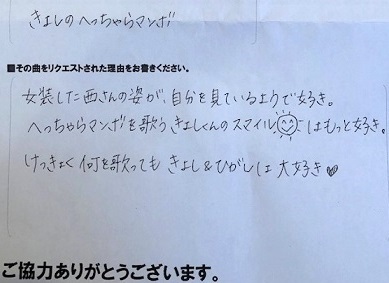 きよしのへっちゃらマンボ
■その曲をリクエストされた理由をお書きください。
女装した西さんの姿が、自分を見ているようで好き。
へっちゃらマンボを歌うきよしくんのスマイルはもっと好き。
けっきょく何を歌っても きよし&ひがしは 大好き♥
ご協力ありがとうございます。